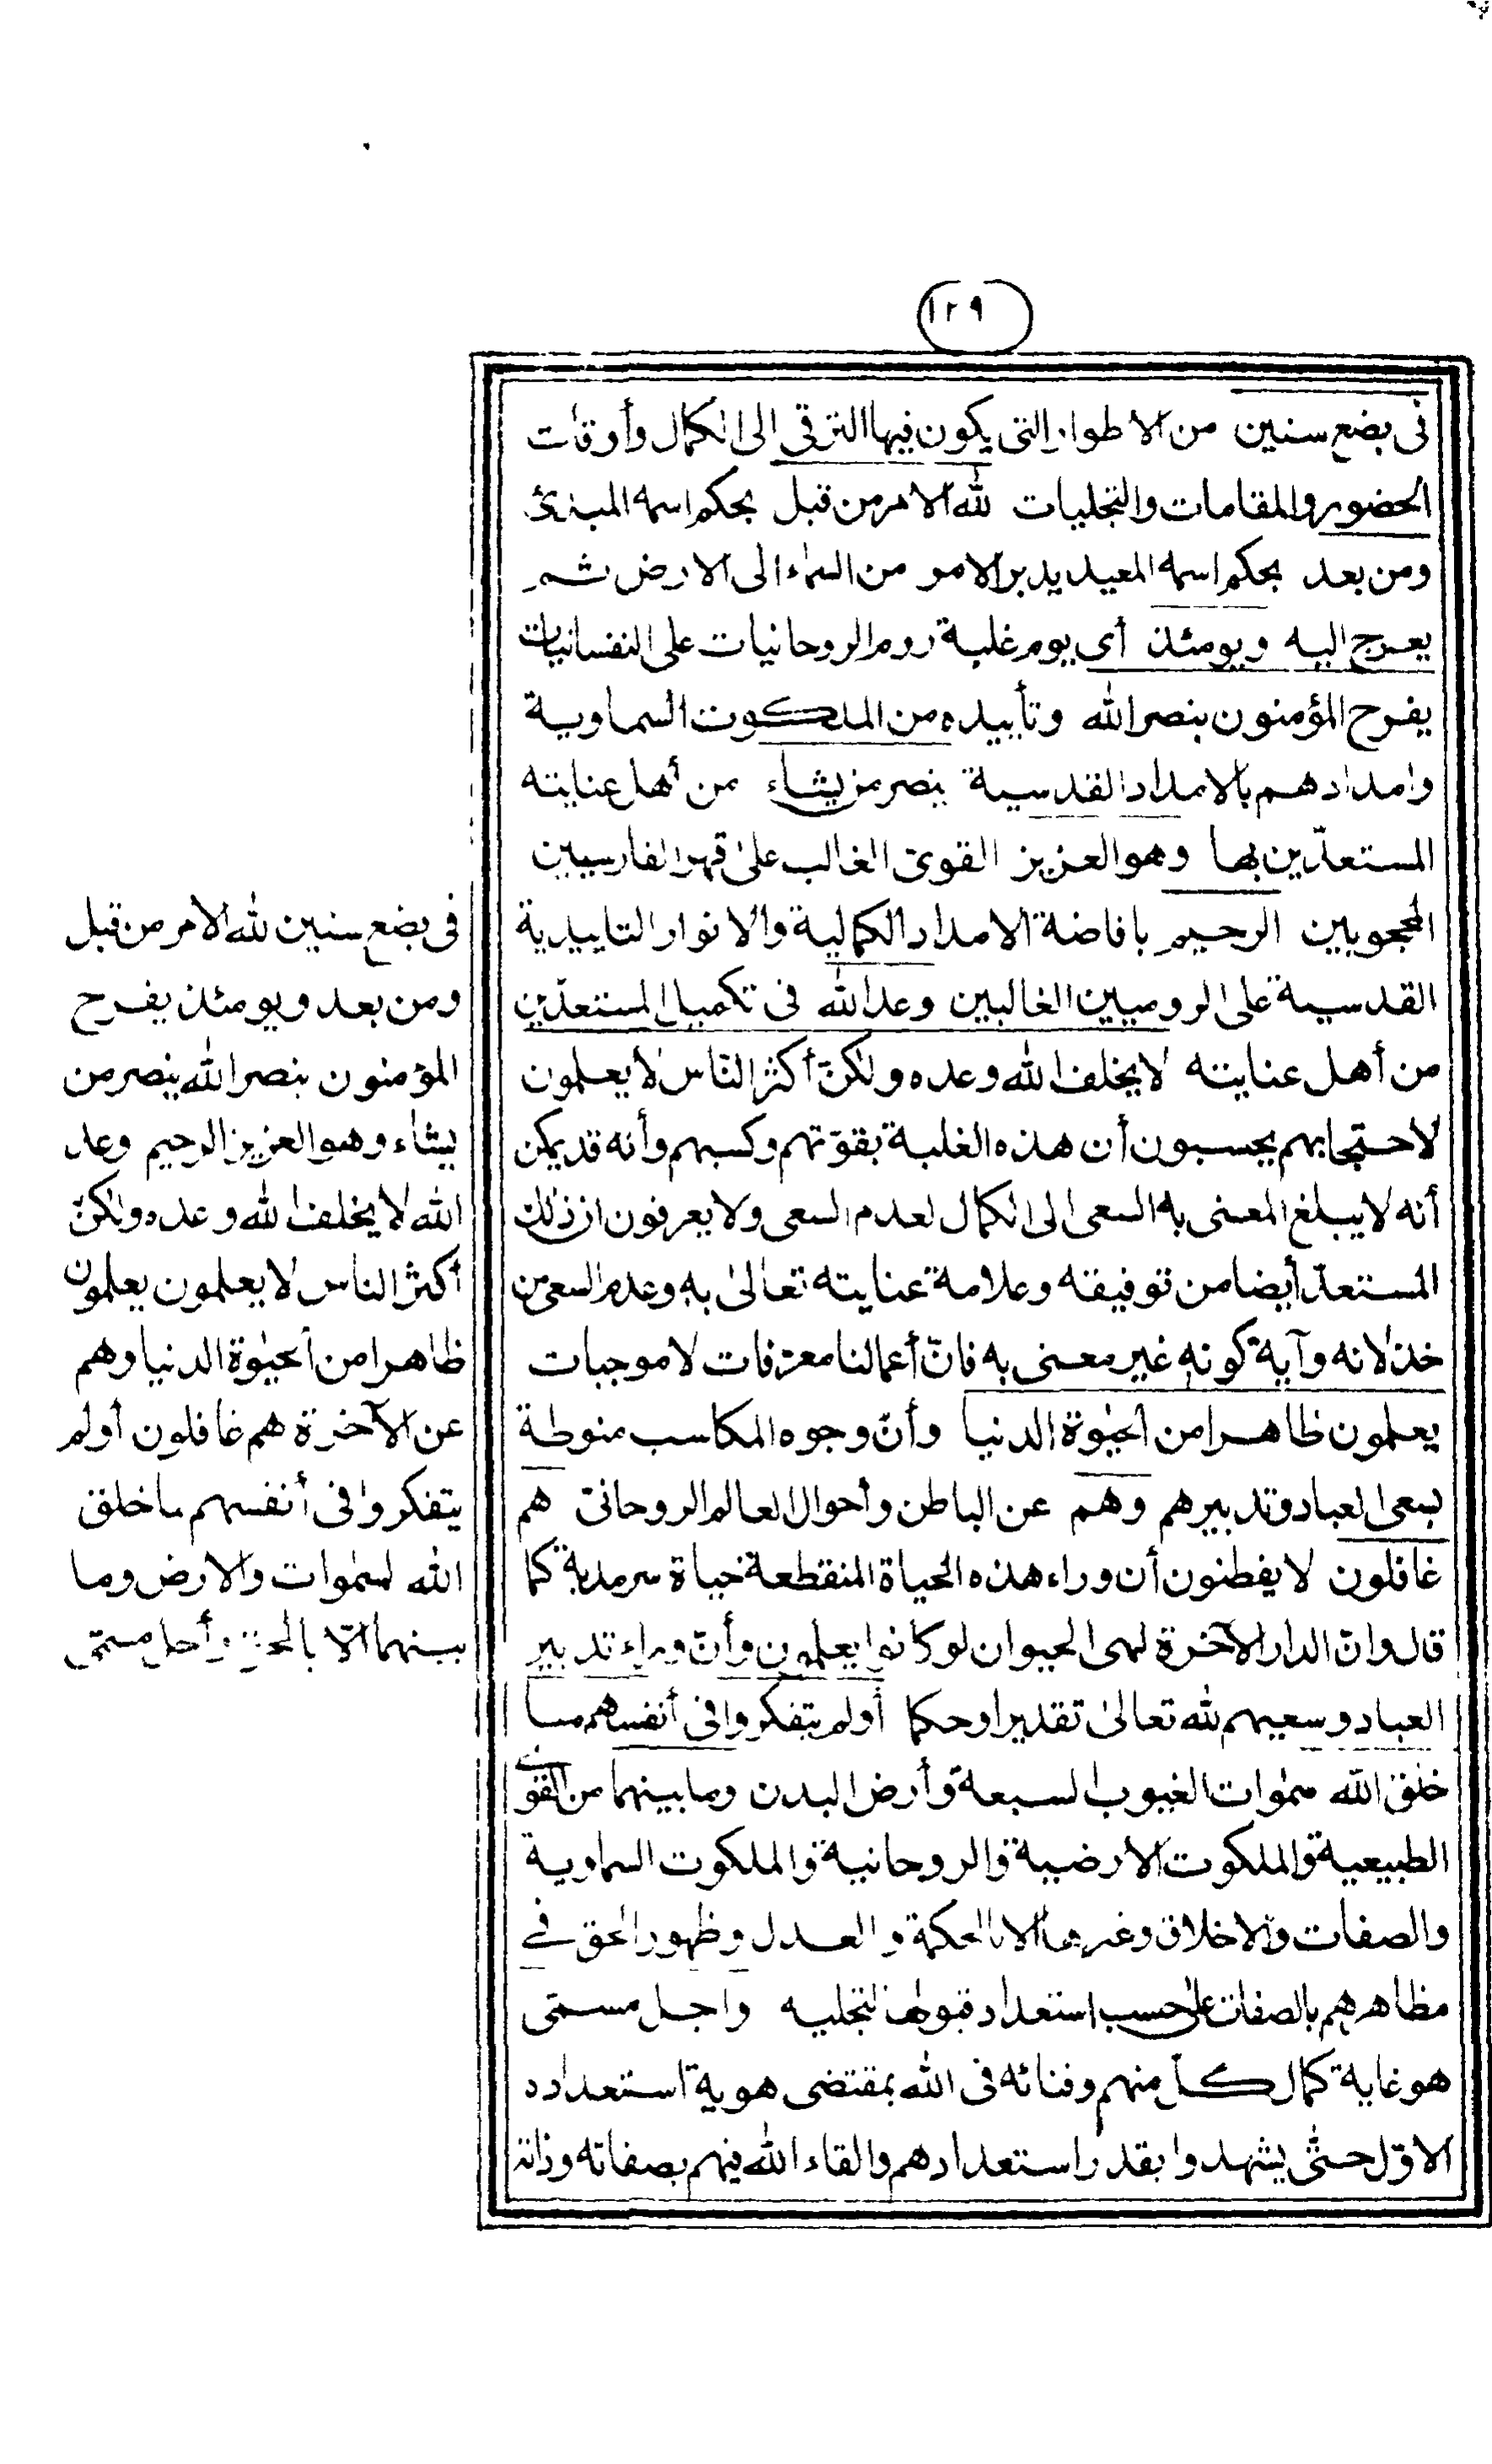 ١٢٩
فى بضع سنين من الاطوار التى يكون فيها الترقى الى الكمال وأوقات
الحضور والمقامات والتجليات لله الامر من قبل بحكم اسمه المبدئ
ومن بعد بحكم اسمه المعيد يدبر الامر من السماء الى الارض ثم
يعرج اليه ويومئذ أى يوم غلبة روم الروحانيات على النفسانيات
يفرح المؤمنون بنصر الله وتأييده من الملكوت السماوية
وامدادهم بالامداد القدسية ينصر من يشاء من أهل عنايته
المستعدّين بها وهو العزيز القوىّ الغالب على قهر الفارسيين
المحجوبين الرحيم بافاضة الامداد الكمالية والانوار التاييدية
القدسية على الروميين الغالبين وعد الله فى تكميل المستعدّين
من أهل عنايته لا يخلف الله وعده ولكنّ أكثر الناس لا يعلمون
لاحتجابهم يحسبون أن هذه الغلبة بقوّتهم وكسبهم وأنه قد يمكن
أنه لا يبلغ المعنى به السعى الى الكمال لعدم السعى ولا يعرفون ان ذلك
المستعدّ أيضا من توفيقه وعلامة عنايته تعالى به وعدم السعى من
خذلانه وآية كونه غير معنى به فانّ أعمالنا معرّفات لا موجبات
يعلمون ظاهرا من الحيوة الدنيا وأنّ وجوه المكاسب منوطة
بسعى العباد وتدبيرهم وهم عن الباطن وأحوال العالم الروحانىّ هم
غافلون لا يفطنون أن وراء هذه الحياة المنقطعة حياة سرمدية كما
قال وانّ الدار الآخرة لهى الحيوان لو كانوا يعلمون وأنّ وراء تدبير
العباد وسعيهم لله تعالى تقديرا وحكما أولم يتفكروا فى أنفسهم ما
خلق الله سموات الغيوب السبعة وأرض البدن وما بينهما من القوى
الطبيعية والملكوت الارضية والروحانية والملكوت السماوية
والصفات والاخلاق وغيرها الا بالحكمة والعدل وظهور الحق فى
مظاهرهم بالصفات على حسب استعداد قبولها لتجليه واجل مسمى
هو غاية كمال كل منهم وفنائه فى الله بمقتضى هوية استعداده
الاوّل حتى يشهدوا بقدر استعدادهم والقاء الله فيهم بصفاته وذاته
فى بضع سنين لله الامر من قبل
ومن بعد ويومئذ يفرح
المؤمنون بنصر الله ينصر من
يشاء وهو العزيز الرحيم وعد
الله لا يخلف الله وعده ولكنّ
أكثر الناس لا يعلمون يعلمون
ظاهرا من الحيوة الدنيا وهم
عن الآخرة هم غافلون أولم
يتفكروا فى أنفسهم ما خلق
الله السموات والارض وما
بينهما الّا بالحق وأجل مسمى